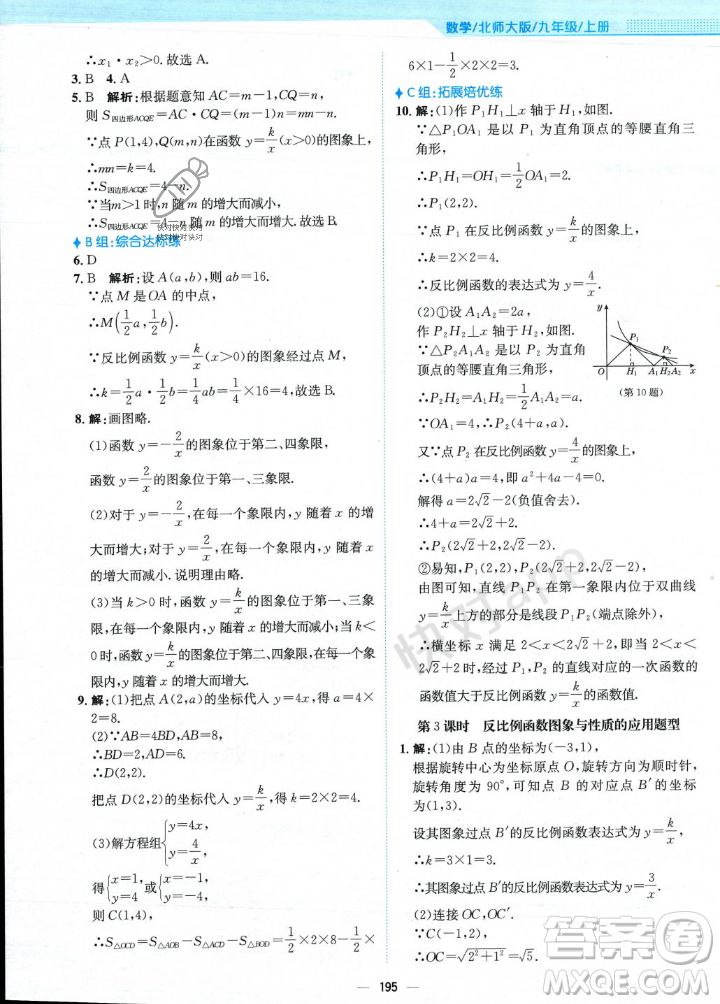 数学/北师大版/九年级/上册
∴x₁·x₂>0.故选A.
3. B 4. A
5. B 解析:根据题意知 AC=m-1,CQ=n,
则 S四边形ACQE=AC·CQ=(m-1)n=mn-n.
∵点 P(1,4),Q(m,n)在函数 y=k/x 的图象上,
∴mn=k=4.
∴S四边形ACQE=4-n.
∵当m>1时,n随 m 的增大而减小,
∴S四边形ACQE=4-n 随 m 的增大而增大.故选 B.
快对快对快对
快对快对快对
B 组:综合达标练
6. D
7. B 解析:设 A(a,b),则 ab=16.
∵点 M 是 OA 的中点,
∴M(1/2 a, 1/2 b).
∵反比例函数 y=k/x (x>0)的图象经过点 M,
∴k=1/2 a·1/2 b=1/4 ab=1/4×16=4.故选 B.
8. 解:画图略.
(1)函数 y=-2/x 的图象位于第二、四象限,
函数 y=2/x 的图象位于第一、三象限.
(2)对于 y=-2/x,在每一个象限内,y 随着 x 的增
大而增大;对于 y=2/x,在每一个象限内,y 随着 x
的增大而减小.说明理由略.
(3)当 k>0 时,函数 y=k/x 的图象在第一、三象
限,在每一个象限内,y 随着 x 的增大而减小;当 k<
0时,函数 y=k/x 的图象在第二、四象限,在每一个
象限内,y 随着 x 的增大而增大.
9. 解:(1)把点 A(2,a)的坐标代入 y=4x,得 a=4×
2=8.
(2)∵AB=4BD,AB=8,
∴BD=2,
∴D(2,2).
把点 D(2,2)的坐标代入 y=k/x,得 k=2×2=4.
(3)解方程组{y=4x, y=4/x,
得{x=1, y=4 或{x=-1, y=-4.
则 C(1,4),
∴S△OCD=S△AOB-S△AOC-S△BOD=1/2×2×8-1/2×
6×1-1/2×2×2=3.
C 组:拓展培优练
10. 解:(1)作 P₁H₁⊥x 轴于 H₁,如图.
∵△P₁OA₁ 是以 P₁ 为直角顶点的等腰直角三
角形,
∴P₁H₁=OH₁=1/2 OA₁=2.
∴P₁(2,2).
∵点 P₁ 在反比例函数 y=k/x 的图象上,
∴k=4.
∴反比例函数的表达式为 y=4/x.
(2)①设 A₁A₂=2a,
作 P₂H₂⊥x 轴于 H₂,如图.
∵△P₂A₁A₂ 是以 P₂ 为直角
顶点的等腰直角三角形,
∴P₂H₂=A₁H₂=1/2 A₁A₂=a.
∵OA₁=4,∴P₂(4+a,a).
y
P₁
P₂
O
H₁
A₁H₂A₂
x
(第 10 题)
又∵点 P₂ 在反比例函数 y=4/x 的图象上,
∴(4+a)·a=4,即 a²+4a-4=0.
解得 a=2√2-2(负值舍去).
∴4+a=2√2+2.
∴P₂(2√2+2,2√2-2).
②易知,P₁(2,2),P₂(2√2+2,2√2-2),
由图可知,直线 P₁P₂ 在第一象限内位于双曲线
y=k/x 上方的部分是线段 P₁P₂(端点除外),
∴横坐标 x 满足 2<x<2√2+2.
即当 2<x<2√2+2 时,P₁,P₂ 所对应的一次函数的
函数值大于反比例函数 y=k/x 的函数值.
第 3 课时 反比例函数图象与性质的应用题型
1. 解:(1)由 B 点的坐标为(-3,1),
根据旋转中心为坐标原点 O,旋转方向为顺时针,
旋转角度为 90°,可知点 B 的对应点 B′的坐标
为(1,3).
设其图象过点 B′的反比例函数表达式为 y=k/x,
∴k=3×1=3.
∴图象过点 B′的反比例函数的表达式为 y=3/x.
(2)连接 OC,OC′.
∵C 点的坐标为(-1,2),
∴OC=√(2²+1²)=√5.
快对app
答案圈
MXQE.COM
195